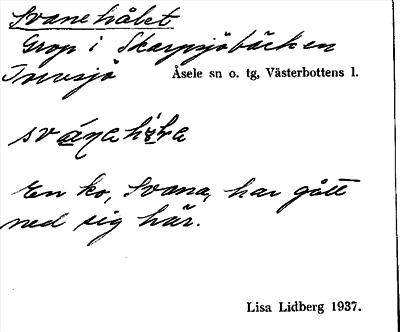 Svanehålet
Grop i Skarpsjöbäcken
Insjö Åsele sn o. tg, Västerbottens l.
En ko, Svana, har gått
ned sig här.
Lisa Lidberg 1937.